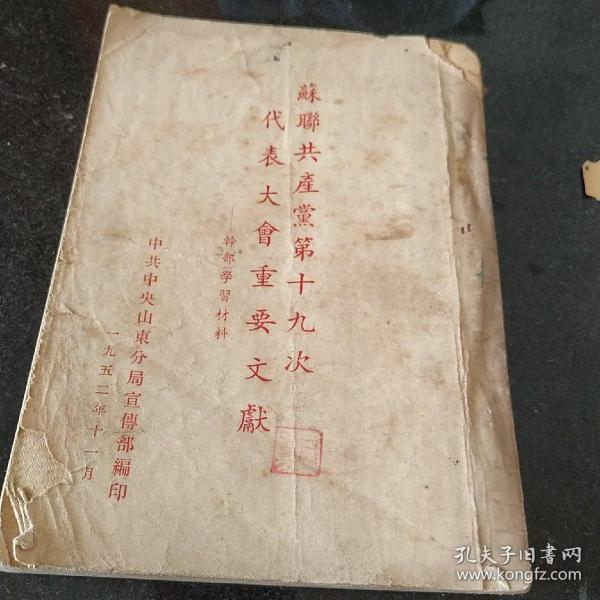 蘇聯共產黨第十九次
代表大會重要文獻
——幹部學習材料
中共中央山東分局宣傳部編印
一九五二年十一月
孔夫子旧書网
www.kongfz.com